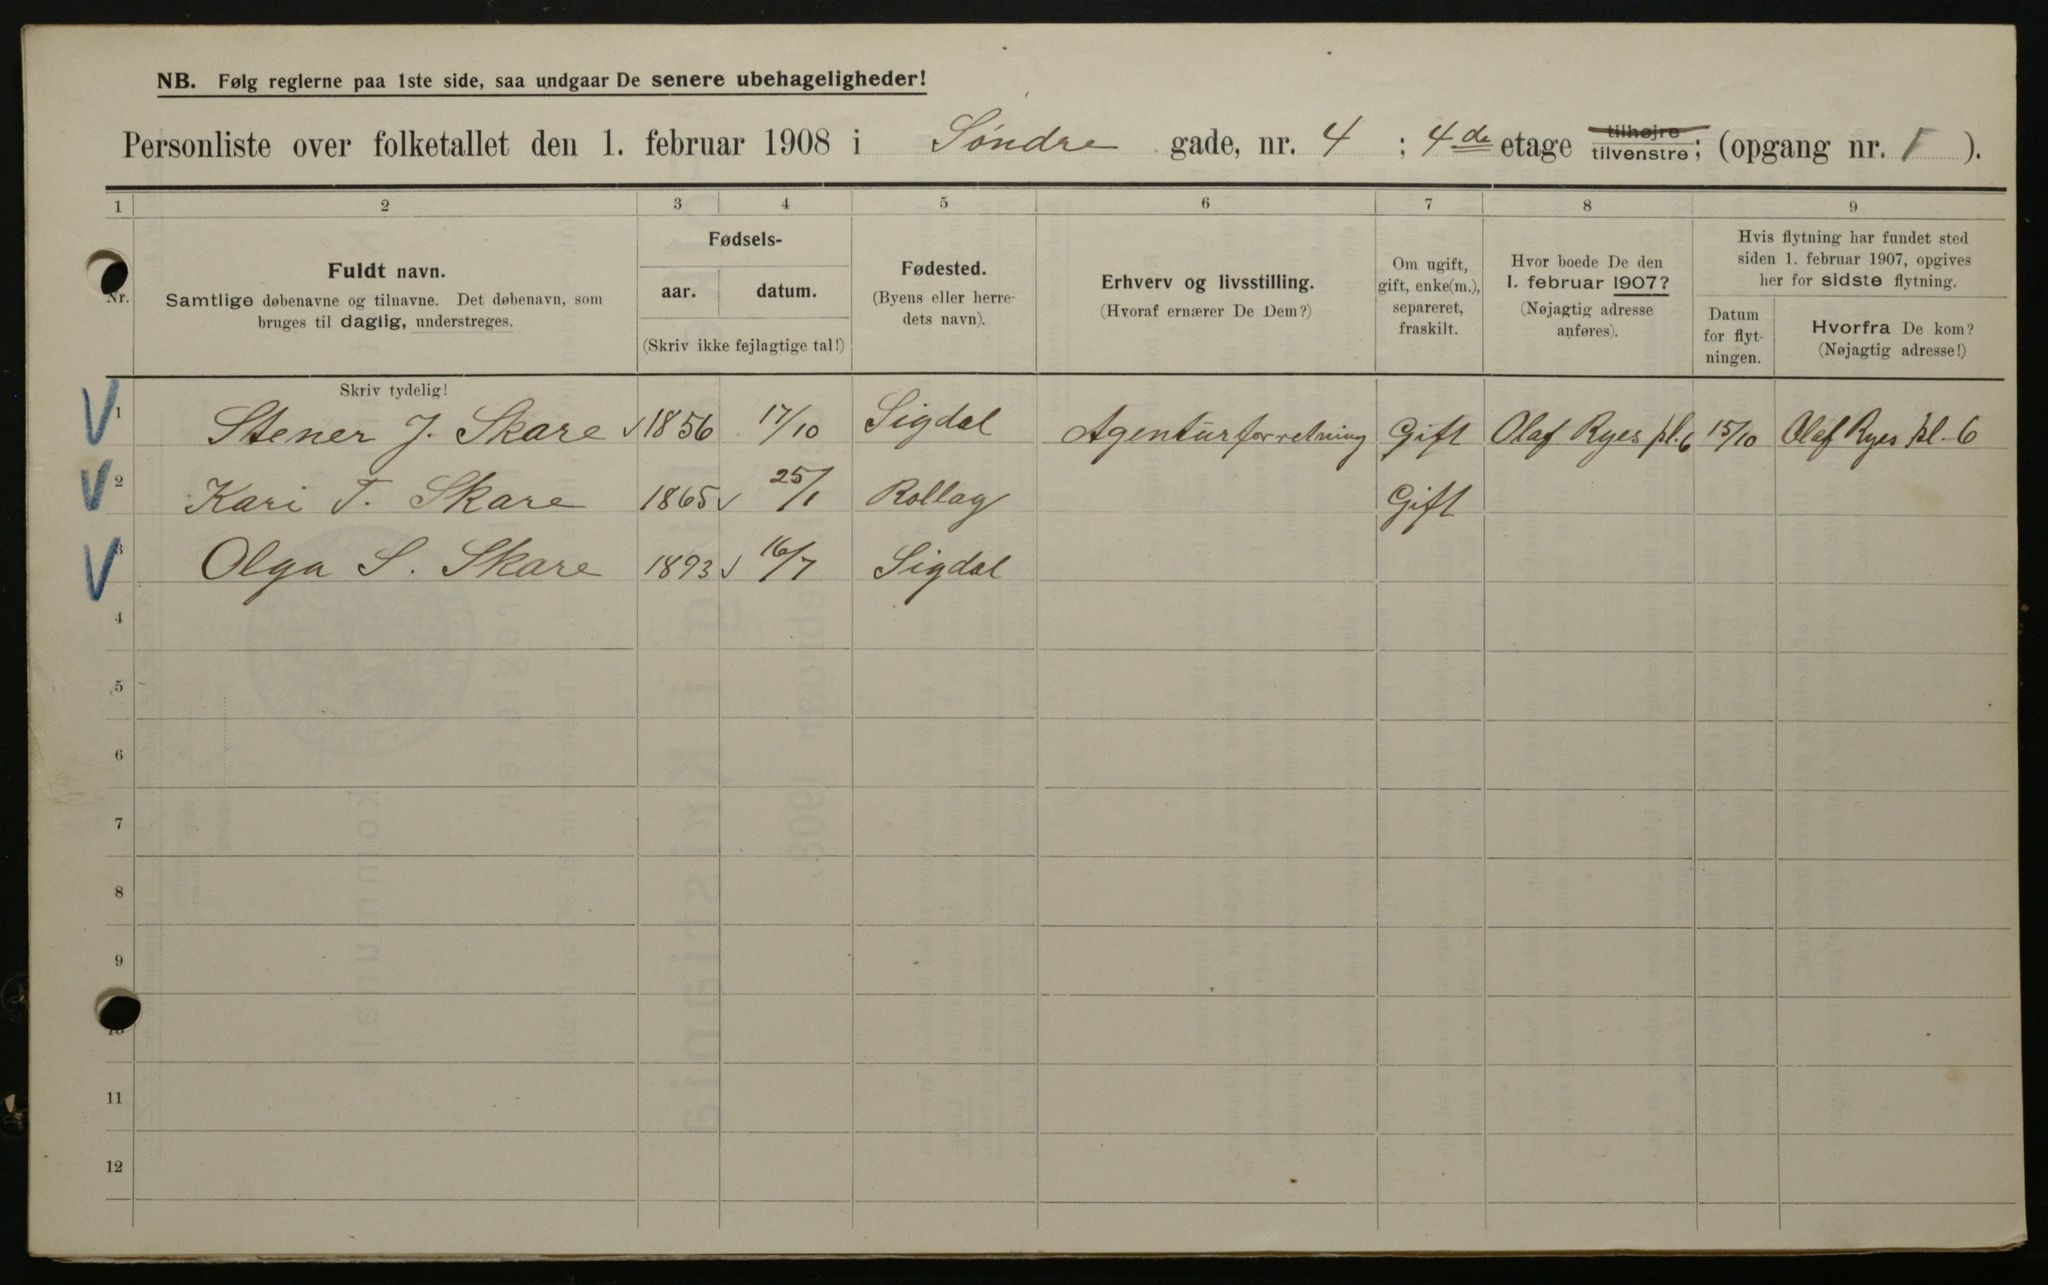 NB. Følg reglerne paa 1ste side, saa undgaar De senere ubehageligheder!
Personliste over folketallet den 1. februar 1908 i Søndre gade, nr. 4 ; 4de etage tilhøjre tilvenstre; (opgang nr. 1 ).
1 2 3 4 5 6 7 8 9
Nr.
Fuldt navn.
Samtlige døbenavne og tilnavne. Det døbenavn, som
bruges til daglig, understreges.
Fødsels-
aar. datum.
(Skriv ikke fejlagtige tal!)
Fødested.
(Byens eller herre-
dets navn).
Erhverv og livsstilling.
(Hvoraf ernærer De Dem?)
Om ugift,
gift, enke(m.),
separeret,
fraskilt.
Hvor boede De den
1. februar 1907?
(Nøjagtig adresse
anføres).
Hvis flytning har fundet sted
siden 1. februar 1907, opgives
her for sidste flytning.
Datum
for flyt-
ningen.
Hvorfra De kom?
(Nøjagtig adresse!)
Skriv tydelig!
1 Stener J. Skare 1856 17/10 Sigdal Agenturforretning Gift Olaf Ryes pl. 6 15/10 Olaf Ryes pl. 6
2 Kari T. Skare 1865 25/1 Rollag Gift
3 Olga S. Skare 1893 16/7 Sigdal
4
5
6
7
8
9
10
11
12